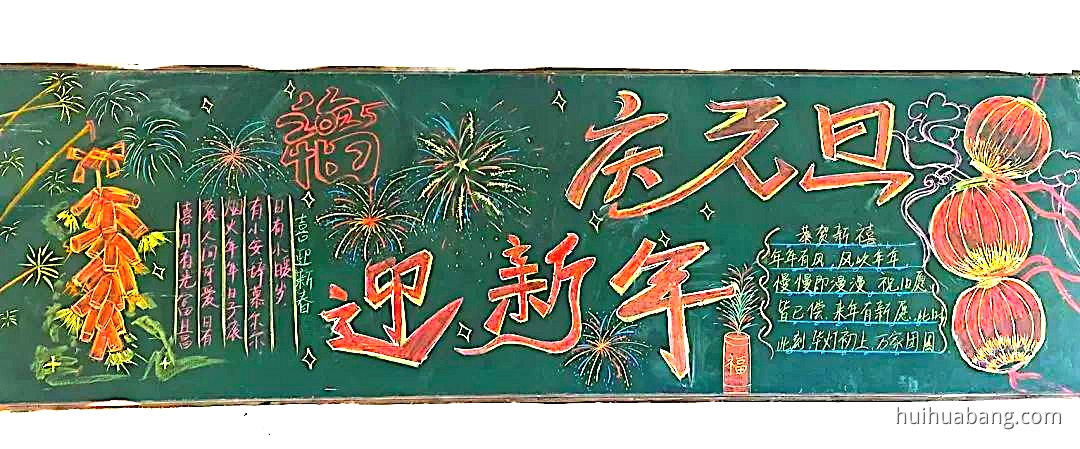 福
2025
庆元旦
迎新年
喜迎新春
日有小暖岁
有小安辞暮尔尔
烟火年年
人间可爱
喜月有光富且昌
福
恭贺新禧
年年有风,风吹年年
慢慢即漫漫,祝旧愿
皆已偿,来年有新愿,此时
此刻 华灯初上,万家团圆
huihuabang.com